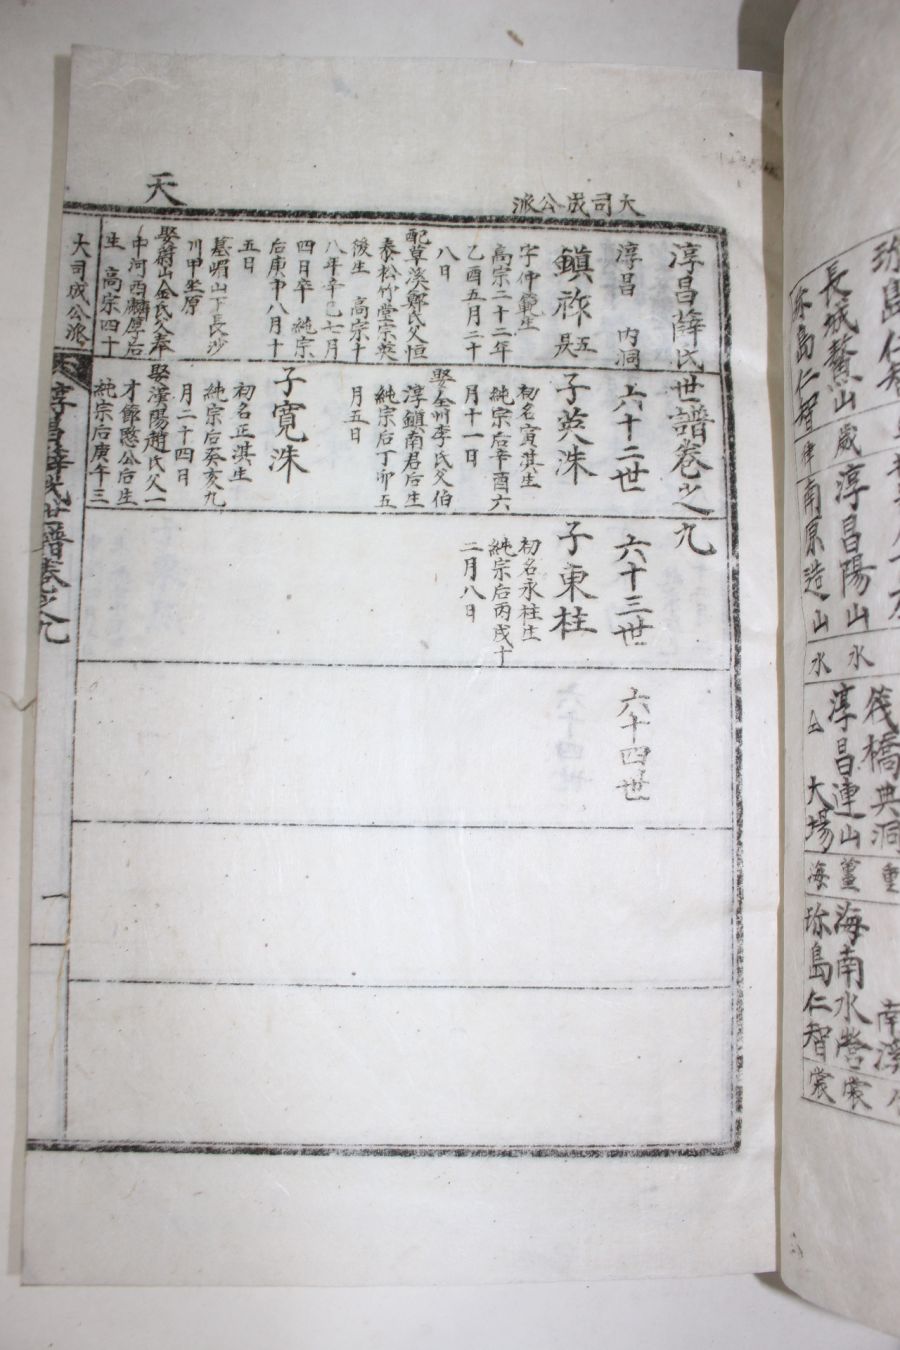 天
大司成公派
淳昌薛氏世譜卷之九
淳昌 內洞
六十二世
六十三世
六十四世
鎭祚 五 見
字仲範生
高宗二十二年
乙酉五月二十
八日
配草溪鄭氏父恒
泰松竹堂宗榮
後生 高宗十
八年辛巳七月
四日卒 純宗
后庚申八月十
五日
墓帽山下長沙
川甲坐原
娶蔚山金氏父奉
中河西麟厚后
生 高宗四十
子英洙
初名寅淇生
純宗后辛酉六
月十一日
娶全州李氏父伯
淳鎭南君后生
純宗后丁卯五
月五日
子寬洙
初名正淇生
純宗后癸亥九
月二十四日
娶漢陽趙氏父一
才節愍公后生
純宗后庚午三
子東柱
初名永柱生
純宗后丙戌十
二月八日
大司成公派
淳昌薛氏世譜卷之九
一
珍島仁智
長城鰲山 歲
珍島仁智 律
淳昌陽山 水
南原造山 水
筏橋典洞 重
淳昌連山
大場 海
海南水營 裳
珍島仁智 裳